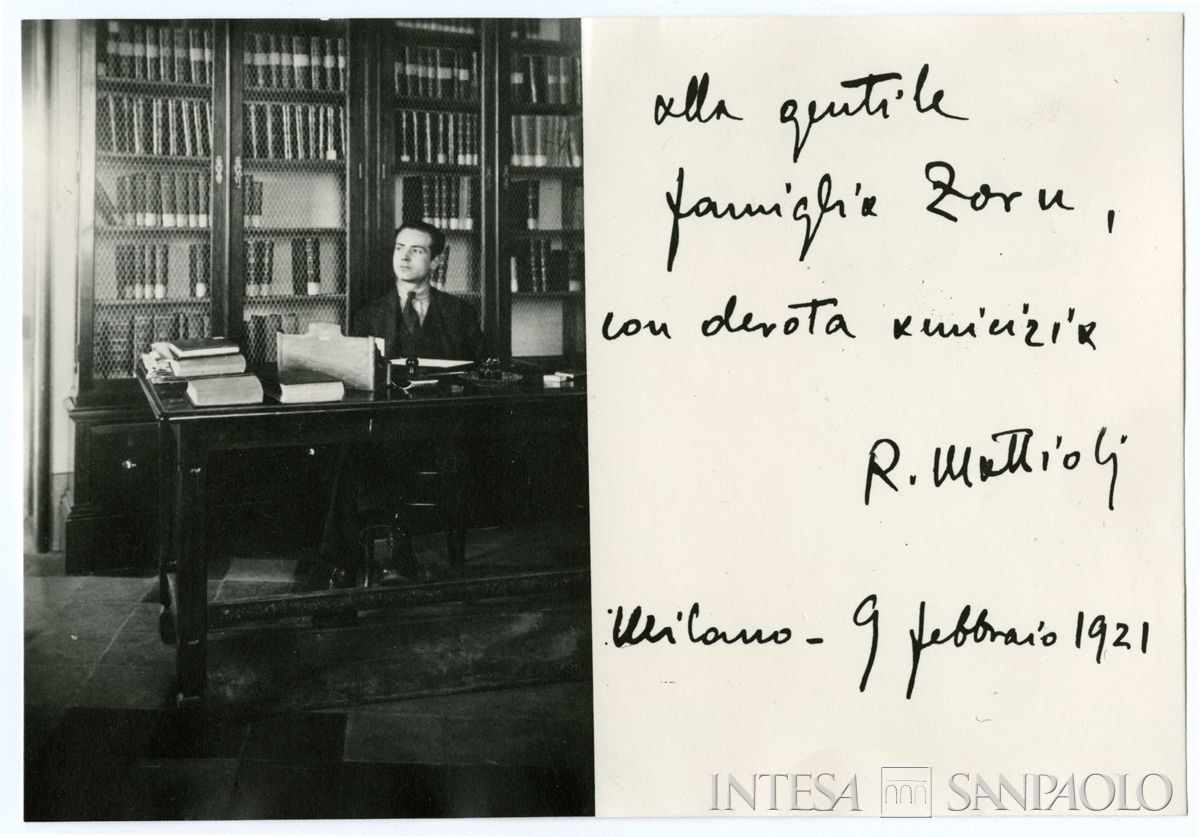 alla gentile
famiglia Zorn,
con devota amicizia
R. Mattioli
Milano - 9 febbraio 1921
INTESA SANPAOLO